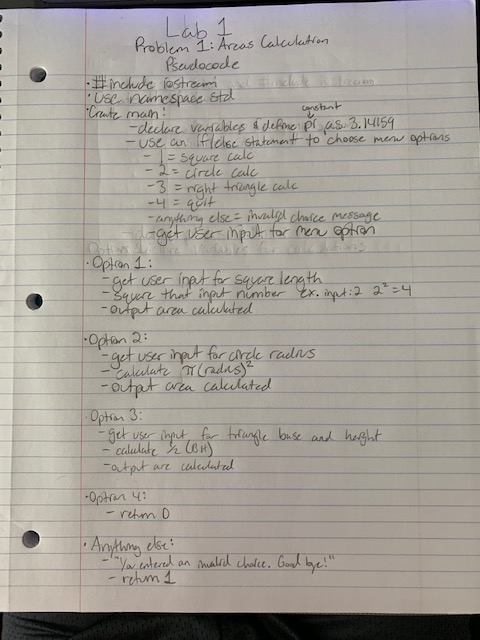 Lab 1
Problem 1: Areas Calculation
Pseudocode
• #include iostream
• Use namespace std
• Create main:
constant
- declare variables & define pi as 3.14159
- use an if/else statement to choose menu options
- 1 = square calc
- 2 = circle calc
- 3 = right triangle calc
- 4 = quit
- anything else = invalid choice message
- get user input for menu option
• Option 1:
- get user input for square length
- square that input number ex. input: 2 2² = 4
- output area calculated
• Option 2:
- get user input for circle radius
- calculate π(radius)²
- output area calculated
• Option 3:
- get user input for triangle base and height
- calculate ½ (BH)
- output are calculated
• Option 4:
- return 0
• Anything else:
- "You entered an invalid choice. Good bye!"
- return 1